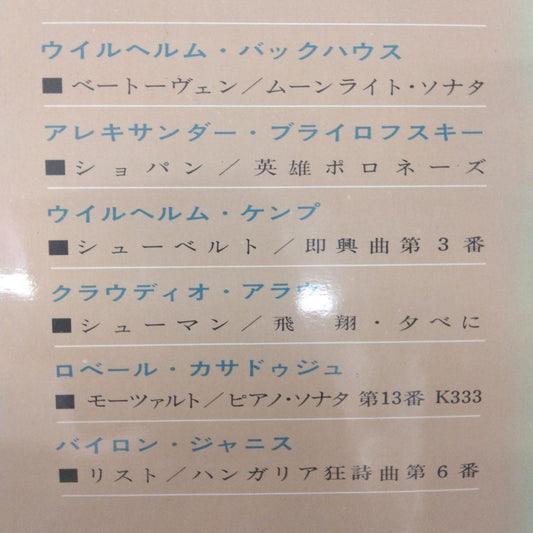 ウイルヘルム・バックハウス
■ベートーヴェン／ムーンライト・ソナタ
アレキサンダー・ブライロフスキー
■ショパン／英雄ポロネーズ
ウイルヘルム・ケンプ
■シューベルト／即興曲第3番
クラウディオ・アラウ
■シューマン／飛翔・夕べに
ロベール・カサドゥジュ
■モーツァルト／ピアノ・ソナタ 第13番 K333
バイロン・ジャニス
■リスト／ハンガリア狂詩曲第6番